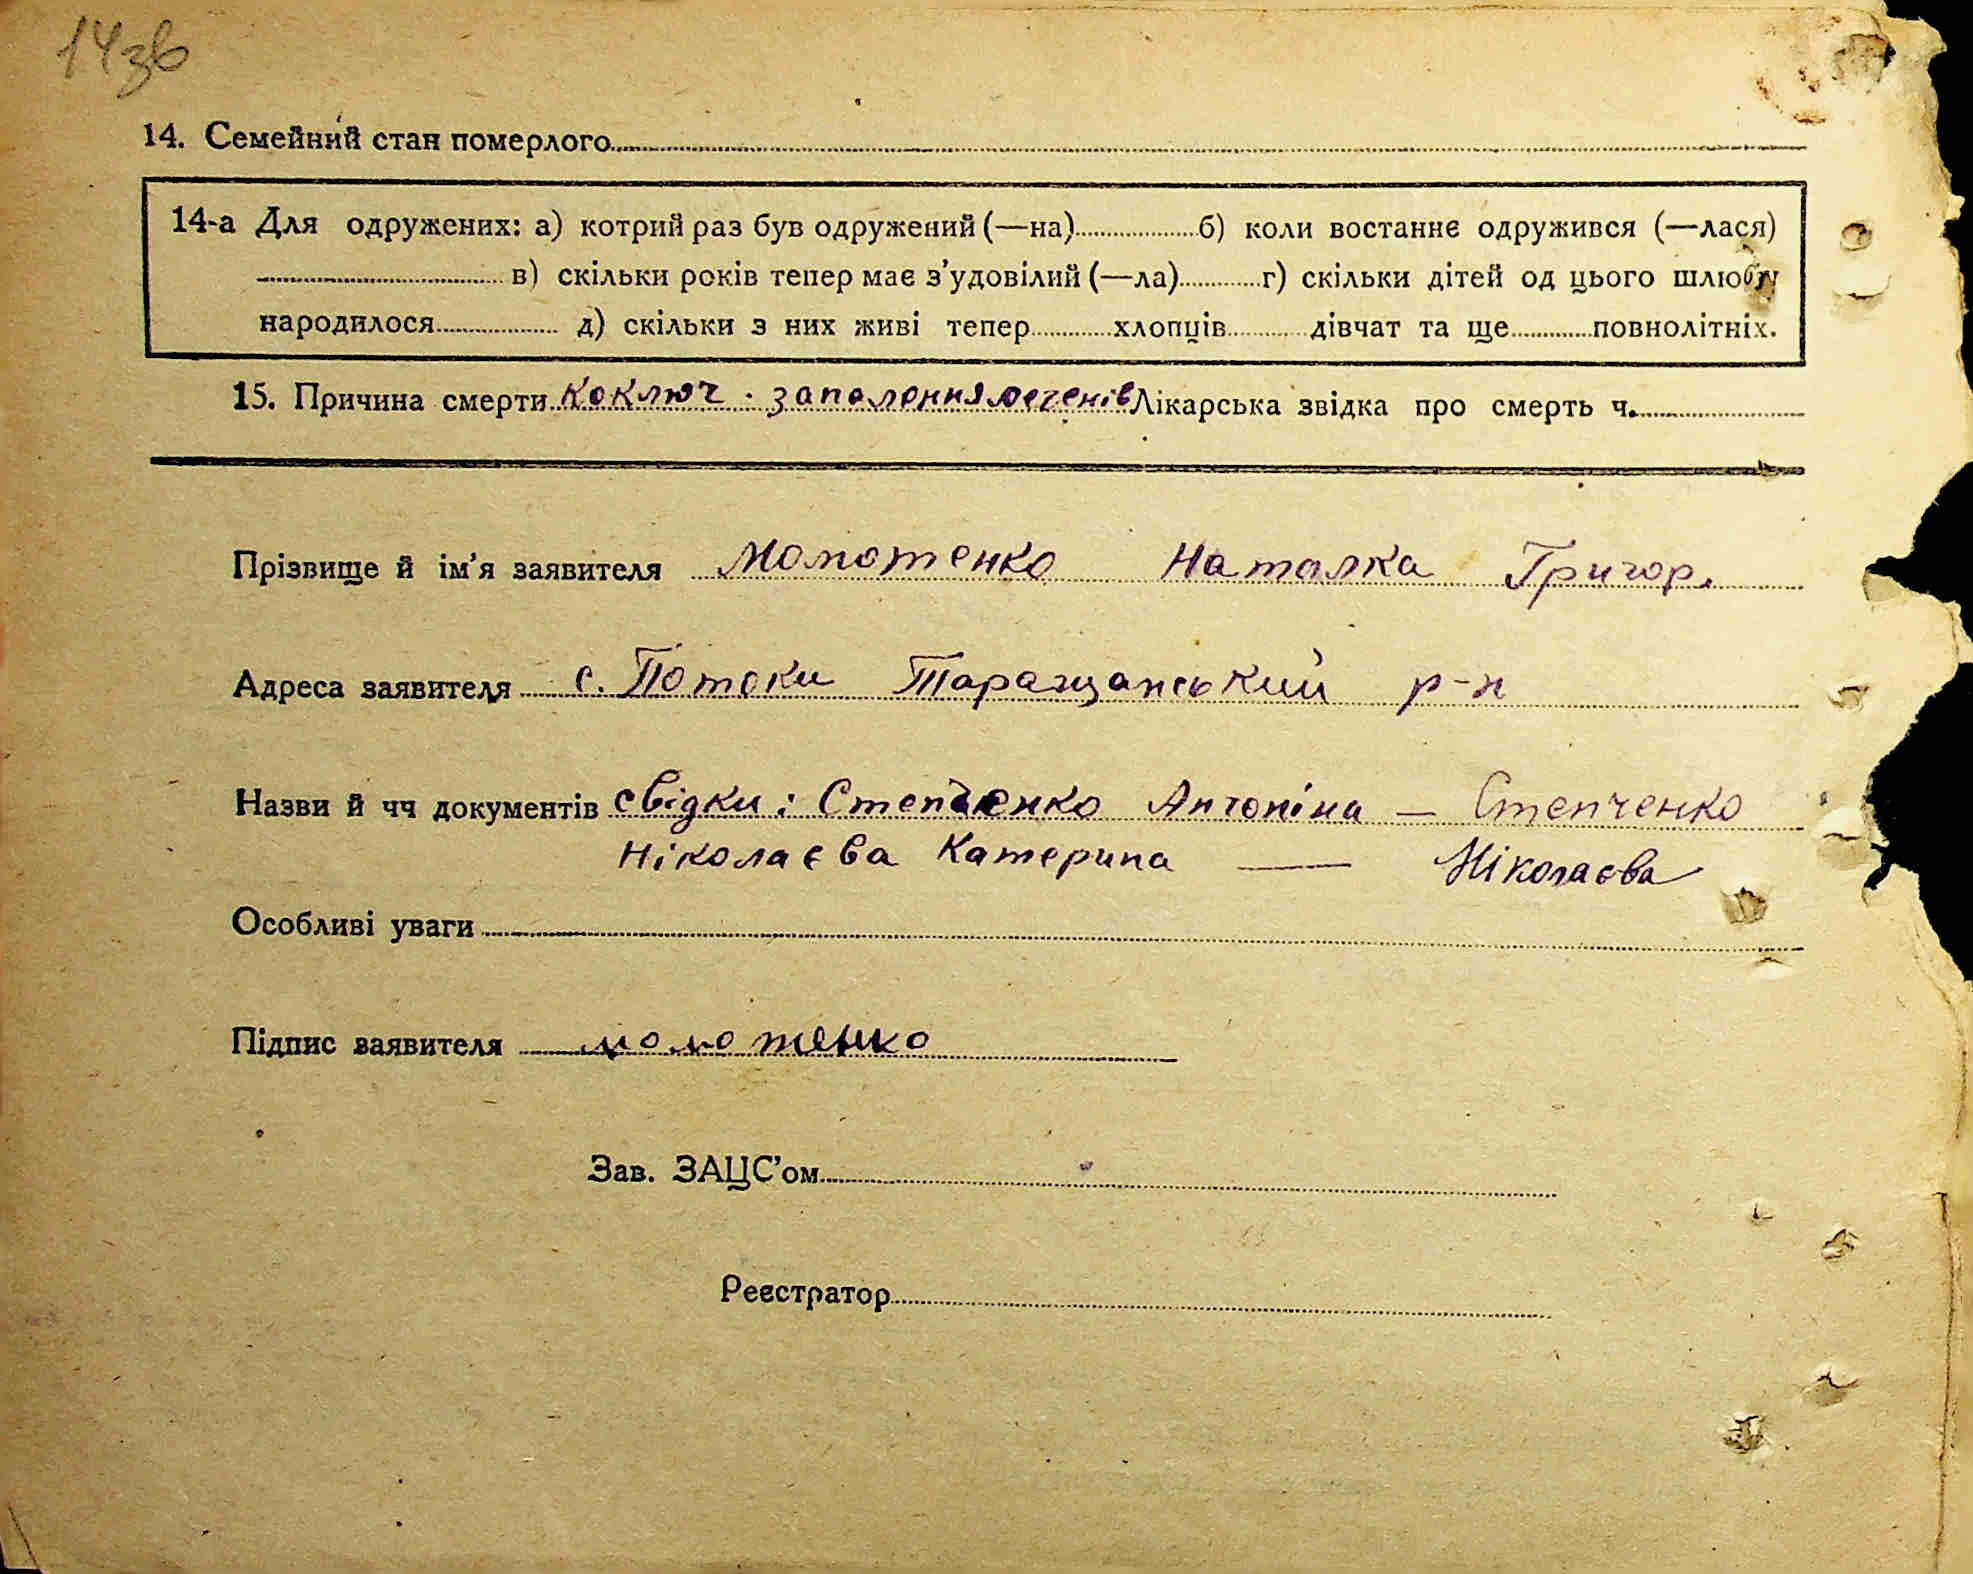 14зв
14. Семейний стан померлого
14-а Для одружених: а) котрий раз був одружений (—на) б) коли востаннє одружився (—лася)
в) скільки років тепер має з’удовілий (—ла) г) скільки дітей од цього шлюбу
народилося д) скільки з них живі тепер хлопців дівчат та ще повнолітніх.
15. Причина смерти Коключ. запалення легенів Лікарська звідка про смерть ч.
Прізвище й ім’я заявителя Момотенко Наталка Григор.
Адреса заявителя с. Потоки Таращанський р-н
Назви й чч документів свідки: Степченко Антоніна — Степченко
Ніколаєва Катерина — Ніколаєва
Особливі уваги
Підпис заявителя момотенко
Зав. ЗАЦС’ом
Реєстратор